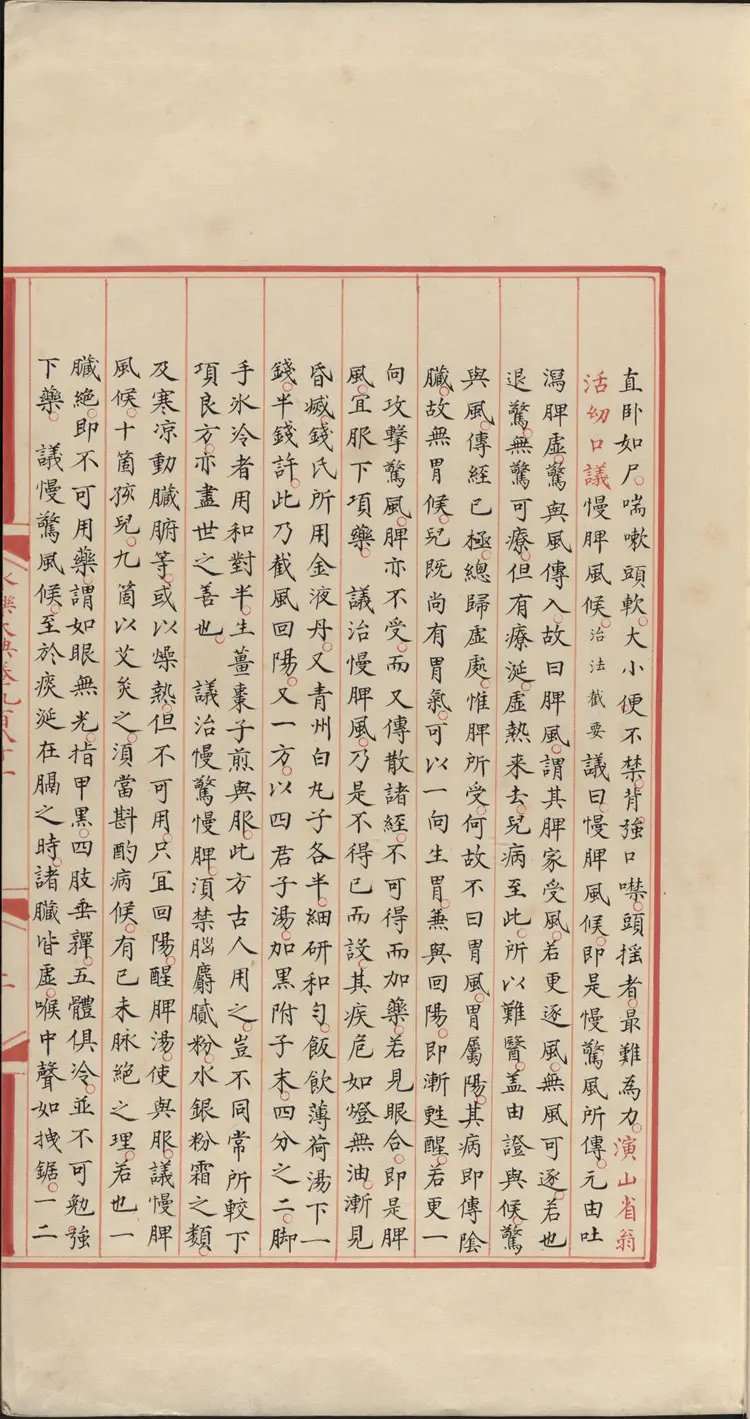 直卧如尸。喘嗽頭軟。大小便不禁。背強口噤。頭揺者。最難為力。演山省翁
活幼口議慢脾風候。治法截要議曰。慢脾風候。即是慢驚風所傳。元由吐
瀉脾虚。驚與風傳入。故曰脾風。謂其脾家受風。若更逐風。無風可逐。若也
退驚。無驚可療。但有療涎。虚熱来去。兒病至此。所以難醫。盖由證與候。驚
與風。傳經已極。總歸虚處。惟脾所受。何故不曰胃風。胃屬陽。其病即傳隂
臟。故無胃候。兒既尚有胃氣。可以一向生胃。兼與回陽。即漸甦醒。若更一
向攻擊驚風。脾亦不受。而又傳散諸經。不可得而加藥。若見眼合。即是脾
風。宜服下項藥。 議治慢脾風。乃是不得已而設。其疾危如燈無油。漸見
昏滅。錢氏所用金液丹。又青州白丸子各半。細研和勻。飯飲薄荷湯下一
錢。半錢許。此乃截風回陽。又一方。以四君子湯。加黑附子末。四分之二。脚
手冰冷者用和對半。生薑棗子煎與服。此方古人用之。豈不同常所較下
項良方。亦盡世之善也。 議治慢驚慢脾。湏禁腦麝膩粉。水銀粉霜之類。
及寒凉動臟腑等。或以燥熱。但不可用。只冝回陽。醒脾湯。使與服。議慢脾
風候。十箇孩兒。九箇以艾炙之。湏當斟酌病候。有已未脉絶之理。若也一
臟絶。即不可用藥。謂如眼無光。指甲黑。四肢垂嚲。五體俱冷。並不可勉強
下藥。 議慢驚風候。至於痰涎在膈之時。諸臟皆虚。喉中聲如拽鋸。一二
永樂大典卷九百八十一
二